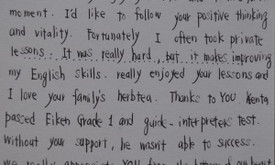 moment. I'd like to follow your positive thinking
and vitality. Fortunately I often took private
lessons. It was really hard, but it makes improving
my English skills. really enjoyed your lessons and
I love your family's herbtea. Thanks to YOU Kenta
passed Eiken Grade 1 and guide-interpreters test.
Without your support, he wasn't able to success.